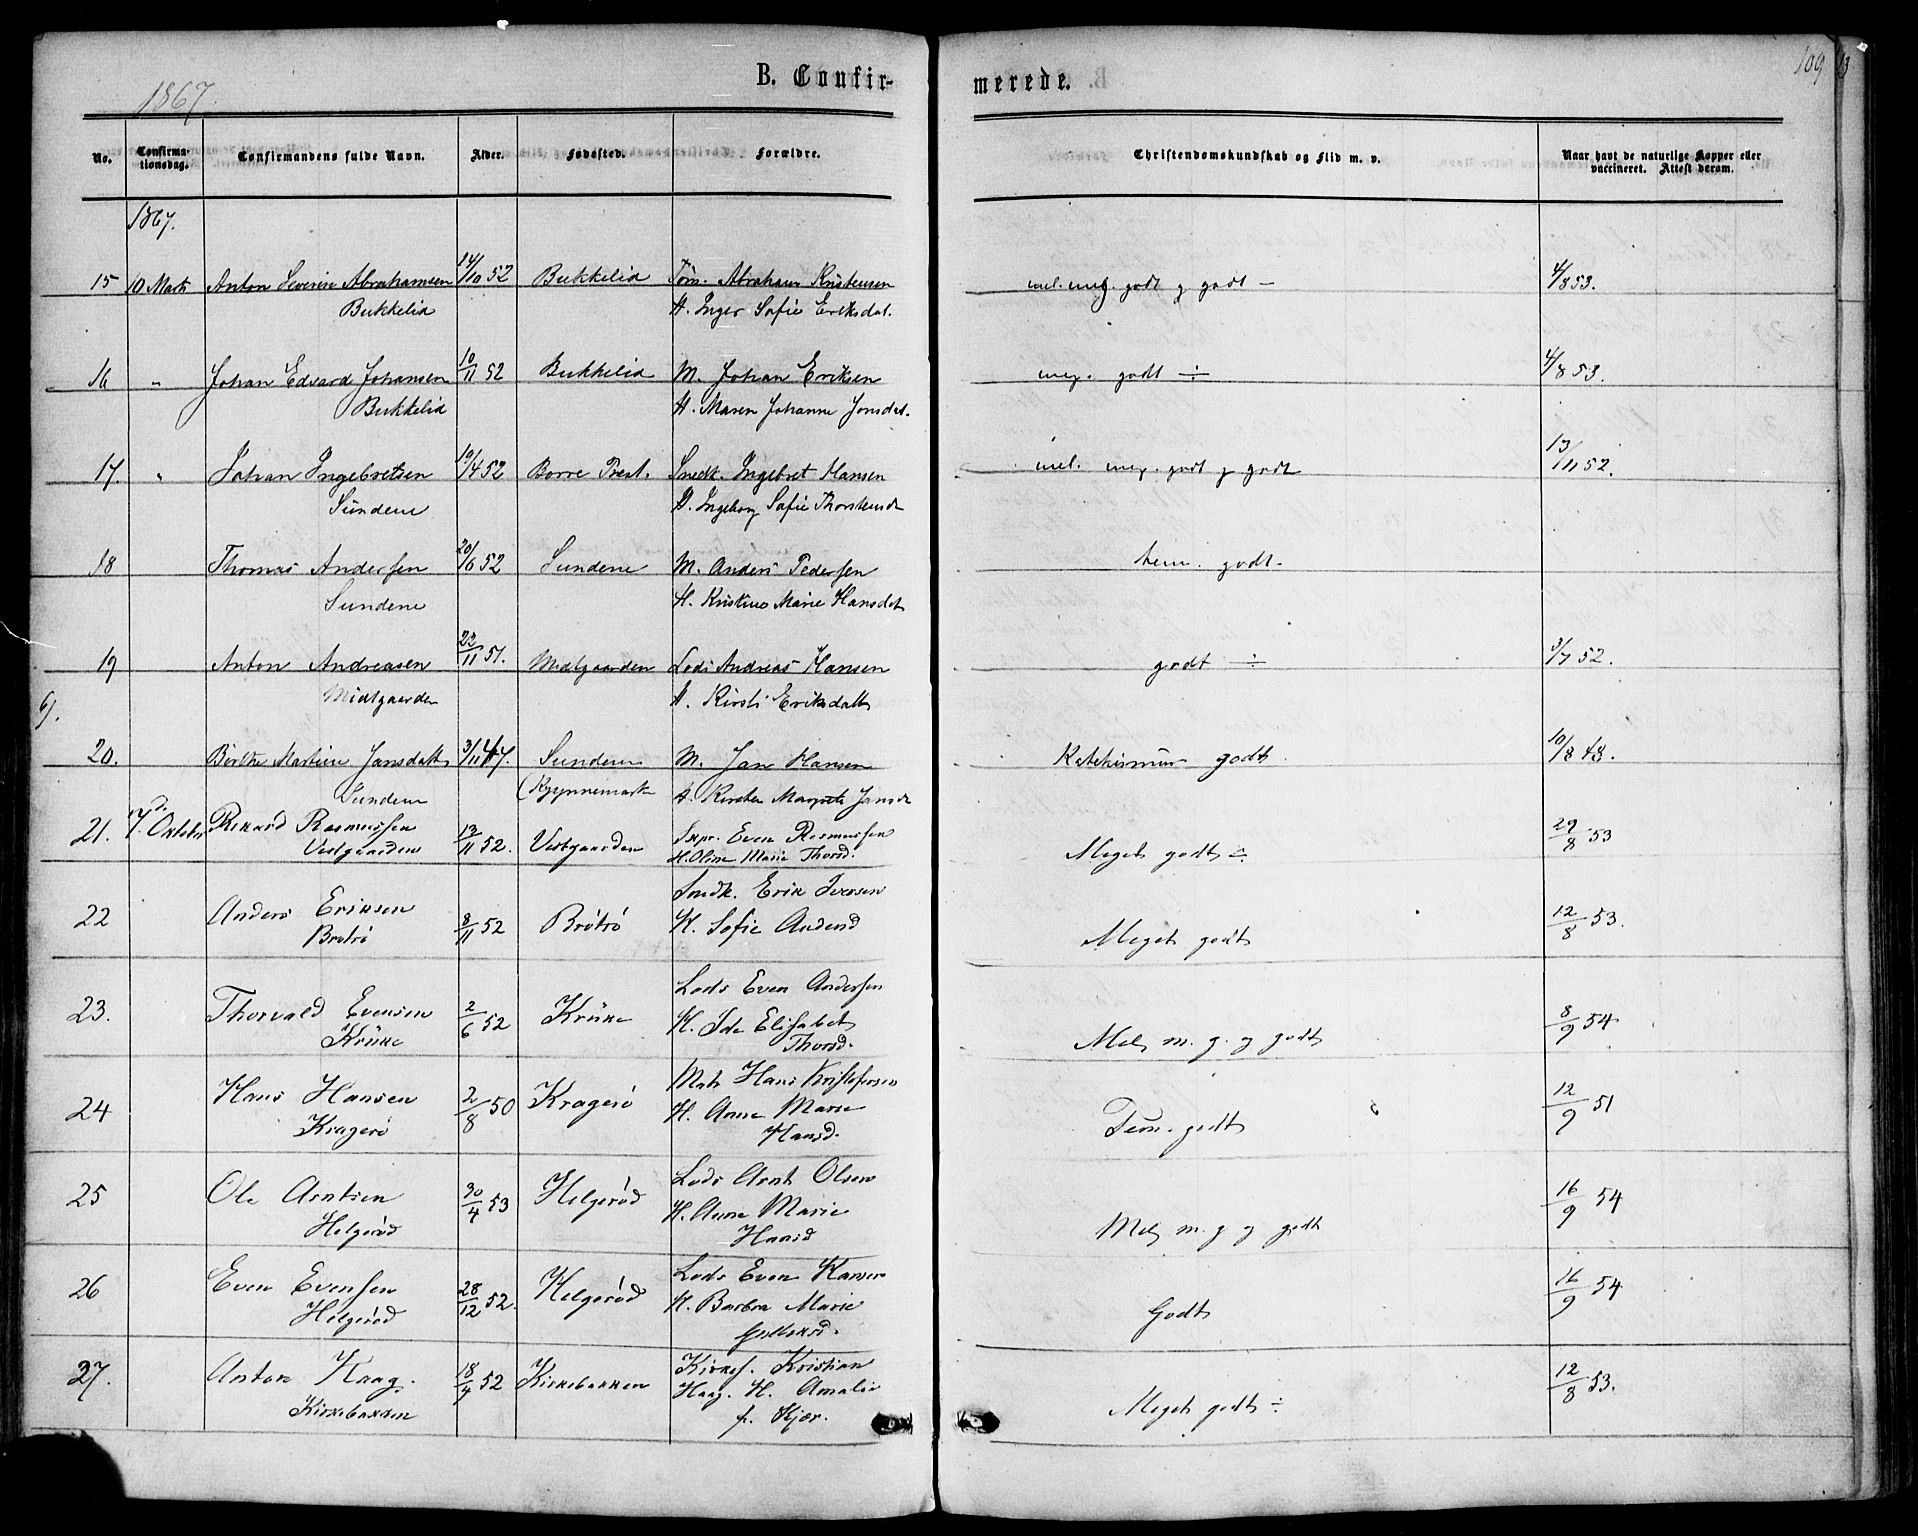 1867.
B. Confir-
merede.
109
No.
Confirma-
tionsdag.
Confirmandens fulde Navn.
Alder.
Fødested.
Forældre.
Christendomskundskab og Flid m. v.
Naar havt de naturlige Kopper eller
vaccineret. Attest derom.
1867.
15 10 Marts Anton Severin Abrahamsen 14/10 52 Bukkelia Tøm. Abraham Kristensen mel. meg. godt g godt - 4/8 53.
Bukkelia H. Inger Sofie Eriksdat.
16 " Johan Edvard Johansen 10/11 52 Bukkelia M. Johan Eriksen meg. godt ÷ 4/8 53.
Bukkelia H. Maren Johanne Jonsdat.
17. " Johan Ingebretsen 10/4 52 Borre Prest. Snedk. Ingebret Hansen mel. meg. godt g godt 13/11 52.
Sundene H. Ingeborg Sofie Thorstensd
18 Thomas Andersen 20/6 52 Sundene M. Anders Pedersen tem. godt.
Sundene H. Kristine Marie Hansdat
19 Anton Andreasen 22/11 51. Midtgaarden Lods Andreas Hansen godt ÷ 3/7 52.
Midtgaarden H. Kirsti Eriksdatt
6).
20. Birthe Martine Jansdatt 3/11 47. Sundene M. Jan Hansen Katekismus godt 10/8 48.
Sundene H. Kirsten Margrete Jansd
21. 7. Oktober Rikard Rasmussen 13/11 52. Vestgaarden Even Rasmussen Meget godt ÷ 29/8 53
Vestgaarden H. Oline Marie Thorsd.
22 Anders Eriksen 8/11 52 Brøtrø Snedk. Erik Iversen Meget godt 12/8 53.
Brøtrø H. Sofie Andersd
23. Thorvald Evensen 2/6 52 Krüke Lods Even Andersen Mel m. g. g godt 8/9 54
Krüke H. Ide Elisabet
Thorsd.
24 Hans Hansen 2/8 50 Kragerø Matr Hans Kristofersen Tem. godt 12/9 51
Kragerø H. Anne Marie
Hansd.
25 Ole Arntsen 30/4 53 Helgerød Lods Arnt Olsen Mel m. g g godt 16/9 54
Helgerød H. Anne Marie
Hansd
26 Even Evensen 28/12 52. Helgerød Lods Even Hansen Godt 16/9 54
Helgerød H. Barbra Marie
27. Anton Haag. 18/4 52 Kirkebakken Kirkes. Kristian Meget godt ÷ 12/8 53.
Kirkebakken Haag. H. Amalie
f. Kjær.